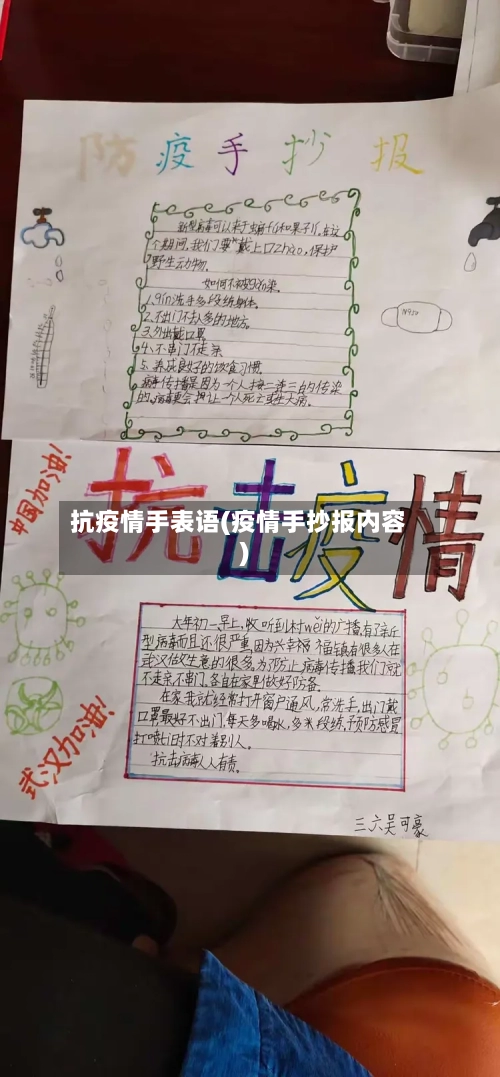 防疫手抄报
新型病毒可以来于虫扁fú和果子lí,在这
个期间,我们要戴上口zhào,保护
野生动物。
如何不被gǎn染。
1.qín洗手多段练身体。
2.不出门不去人多的地方。
3.外出戴口罩。
4.不串门不走亲
5.养成良好的饮食习惯
病毒传播是因为一个人按一基三的传染
的,病毒更会让一个人死亡或生大病。
N95
中国加油!
抗击疫情
抗疫情手表语(疫情手抄报内容
)
大年初一早上,收听到村wěi的广播,有了新
型病毒而且还很严重,因为兴幸福福镇有很多人在
武汉做生意的很多,为了防止病毒传播我们就
不走亲不串门,各自在家里做好防备。
在家我就经常打开窗户通风,常洗手,出门戴
口罩最好不出门,每天多喝水,多米段练,预防感冒
打喷tì时不对着别人。
抗击病毒人人有责。
武汉加油!
三六吴可豪